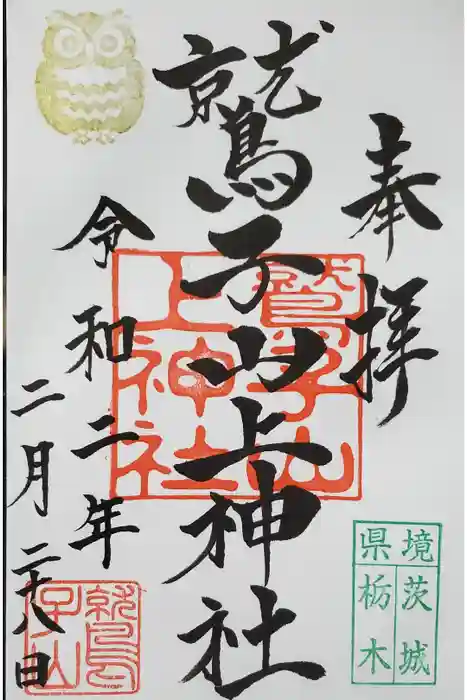 奉拝
鷲子山上神社
令和二年
二月二十八日
鷲子山
上神社
鷲
子山
境
県
茨城
栃木